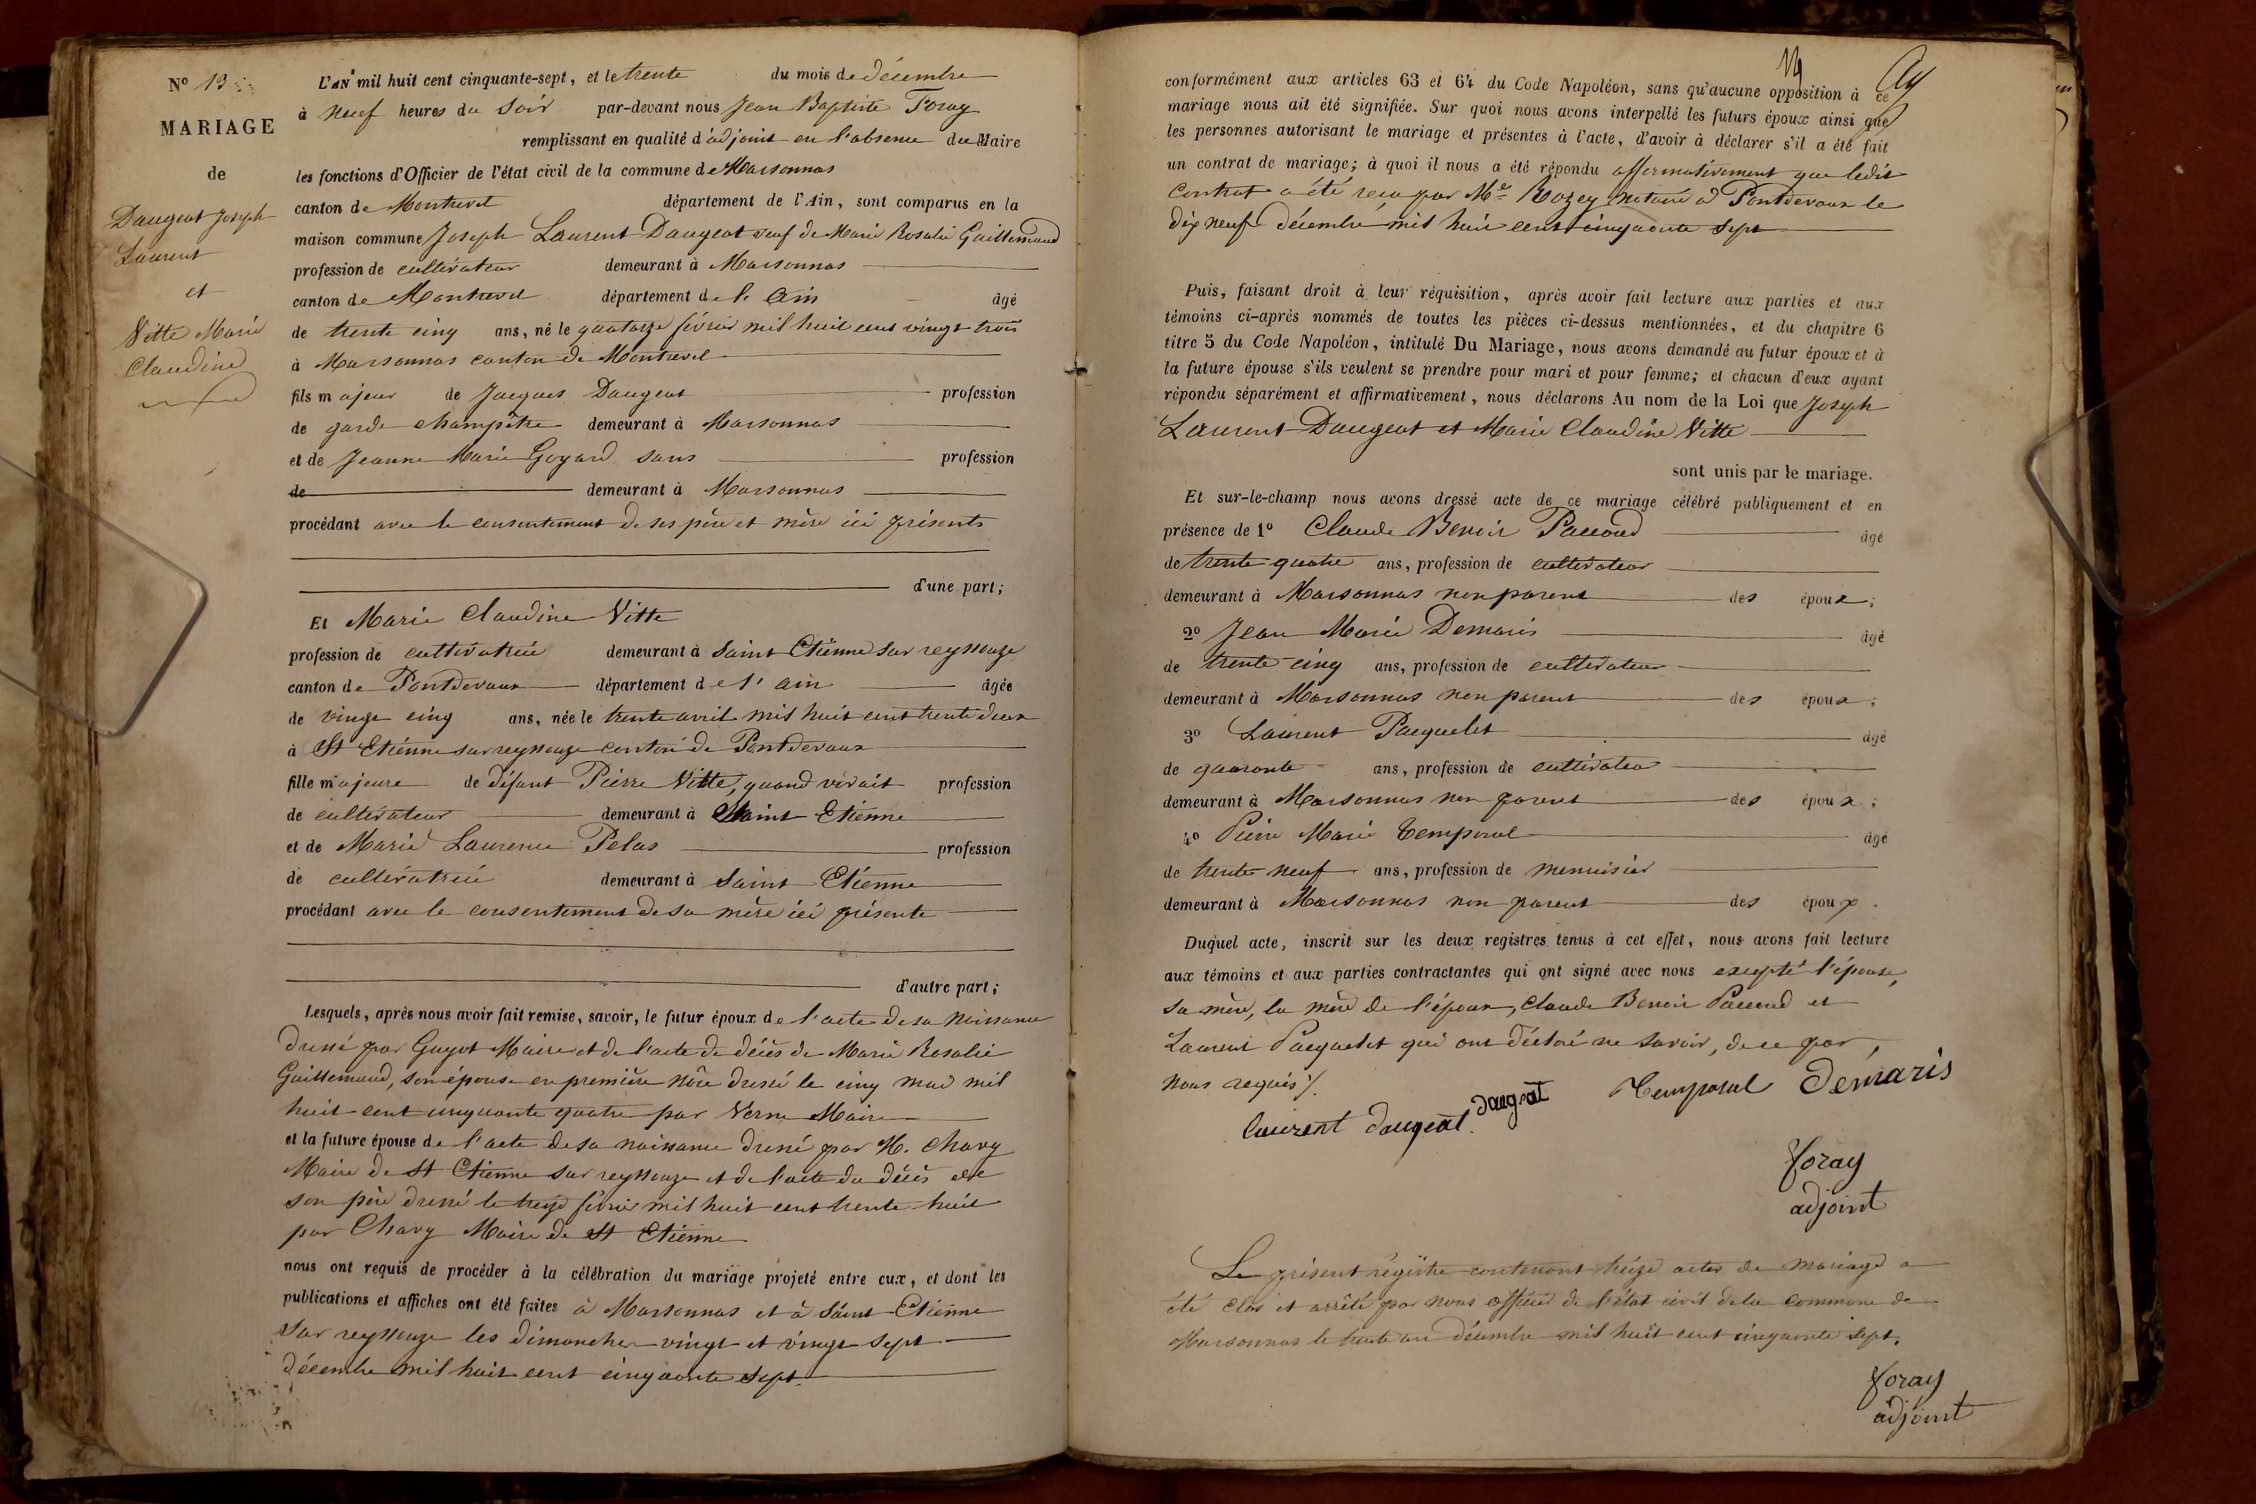 N° 13
MARIAGE
de
Daugeat Joseph
Laurent
et
Vitte Marie
Claudine
L'AN mil huit cent cinquante-sept, et le trente du mois de décembre
à neuf heures du soir par-devant nous Jean Baptiste Foray
remplissant en qualité d'adjoint en l'absence du Maire
les fonctions d'Officier de l'état civil de la commune de Marsonnas
canton de Montrevel département de l'Ain, sont comparus en la
maison commune Joseph Laurent Daugeat veuf de Marie Rosalie Guillemaud
profession de cultivateur demeurant à Marsonnas
canton de Montrevel département de l'Ain âgé
de trente cinq ans, né le quatorze février mil huit cent vingt trois
à Marsonnas canton de Montrevel
fils majeur de Jacques Daugeat profession
de garde champêtre demeurant à Marsonnas
et de Jeanne Marie Goyard sans profession
de demeurant à Marsonnas
procédant avec le consentement de ses père et mère ici présents
d'une part;
Et Marie Claudine Vitte
profession de cultivatrice demeurant à Saint Etienne sur reyssouze
canton de Pontdevaux département de l'ain âgée
de vingt cinq ans, née le trente avril mil huit cent trente deux
à St Etienne sur reyssouze canton de Pontdevaux
fille majeure de défunt Pierre Vitte, quand vivait profession
de cultivateur demeurant à Saint Etienne
et de Marie Laurence Pelus profession
de cultivatrice demeurant à Saint Etienne
procédant avec le consentement de sa mère ici présente
d'autre part;
Lesquels, après nous avoir fait remise, savoir, le futur époux de l'acte de sa naissance
dressé par Guyot Maire et de l'acte de décès de Marie Rosalie
Guillemaud, son épouse en première nôce dressé le cinq mai mil
huit cent cinquante quatre par Verne Maire
et la future épouse de l'acte de sa naissance dressé par M. Chavy
Maire de St Etienne sur reyssouze et de l'acte du décès de
son père dressé le treize février mil huit cent trente huit
par Chavy Maire de St Etienne
nous ont requis de procéder à la célébration du mariage projeté entre eux, et dont les
publications et affiches ont été faites à Marsonnas et à Saint Etienne
sur reyssouze les dimanches vingt et vingt sept
décembre mil huit cent cinquante sept
conformément aux articles 63 et 64 du Code Napoléon, sans qu'aucune opposition à ce
mariage nous ait été signifiée. Sur quoi nous avons interpellé les futurs époux ainsi que
les personnes autorisant le mariage et présentes à l'acte, d'avoir à déclarer s'il a été fait
un contrat de mariage; à quoi il nous a été répondu affirmativement que ledit
contrat a été reçu par Me Rozey notaire à Pontdevaux le
dix neuf décembre mil huit cent cinquante sept
Puis, faisant droit à leur réquisition, après avoir fait lecture aux parties et aux
témoins ci-après nommés de toutes les pièces ci-dessus mentionnées, et du chapitre 6
titre 5 du Code Napoléon, intitulé Du Mariage, nous avons demandé au futur époux et à
la future épouse s'ils veulent se prendre pour mari et pour femme; et chacun d'eux ayant
répondu séparément et affirmativement, nous déclarons Au nom de la Loi que Joseph
Laurent Daugeat et Marie Claudine Vitte
sont unis par le mariage.
Et sur-le-champ nous avons dressé acte de ce mariage célébré publiquement et en
présence de 1° Claude Benoit Paccoud âgé
de trente quatre ans, profession de cultivateur
demeurant à Marsonnas non parent des époux;
2° Jean Marie Demaris âgé
de trente cinq ans, profession de cultivateur
demeurant à Marsonnas non parent des époux;
3° Laurent Pacquelet âgé
de quaronte ans, profession de cultivateur
demeurant à Marsonnas non parent des époux;
4° Pierre Marie Temporal âgé
de trente neuf ans, profession de menuisier
demeurant à Marsonnas non parent des époux.
Duquel acte, inscrit sur les deux registres tenus à cet effet, nous avons fait lecture
aux témoins et aux parties contractantes qui ont signé avec nous excepté l'épouse,
sa mère, la mère de l'époux, Claude Benoit Paccoud et
Laurent Pacquelet qui ont déclaré ne savoir, de ce par
nous requis ./.
laurent daugeat. daugeat Temporal Demaris
foray
adjoint
Le présent régistre contenant treize actes de mariage a
été clos et arrêté par nous officier de l'état civil de la commune de
Marsonnas le trente un décembre mil huit cent cinquante sept.
foray
adjoint